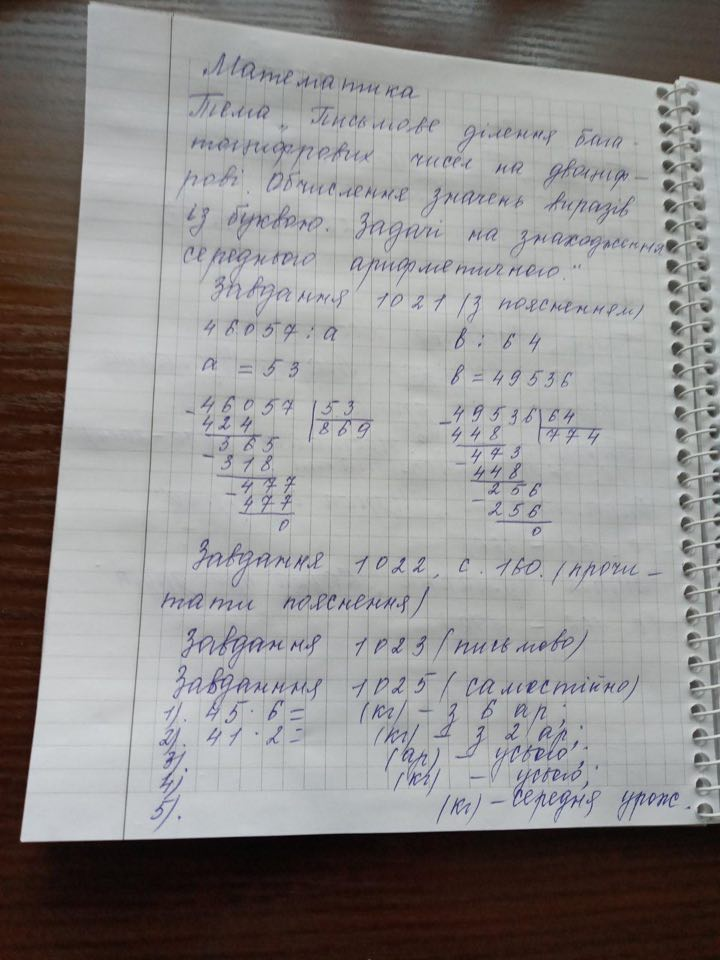 Математика
Тема „ Письмове ділення бага-
тоцифрових чисел на двоциф-
рові. Обчислення значень виразів
із буквою. Задачі на знаходження
середнього арифметичного."
Завдання 1021 (з поясненням)
46057 : а
в : 64
а = 53
в = 49536
- 46057 | 53
424 869
- 365
318
- 477
477
0
- 49536 | 64
448 774
- 473
448
- 256
256
0
Завдання 1022, с. 160. (прочи-
тати пояснення)
Завдання 1023 (письмово)
Завданння 1025 (самостійно)
1). 45 · 6 = (кг) – з 6 ар;
2). 41 · 2 = (кг) – з 2 ар;
3). (ар) – усього;
4). (кг) – усього;
5). (кг) – середня урож.